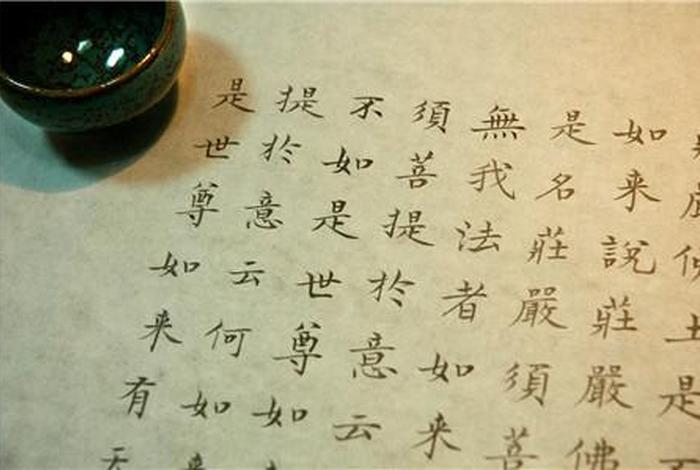 是
如来說莊嚴佛
是名莊嚴須菩
無我法者如来
須菩提於意云
不如是世尊如
提於意云何如来
是世尊如来有天